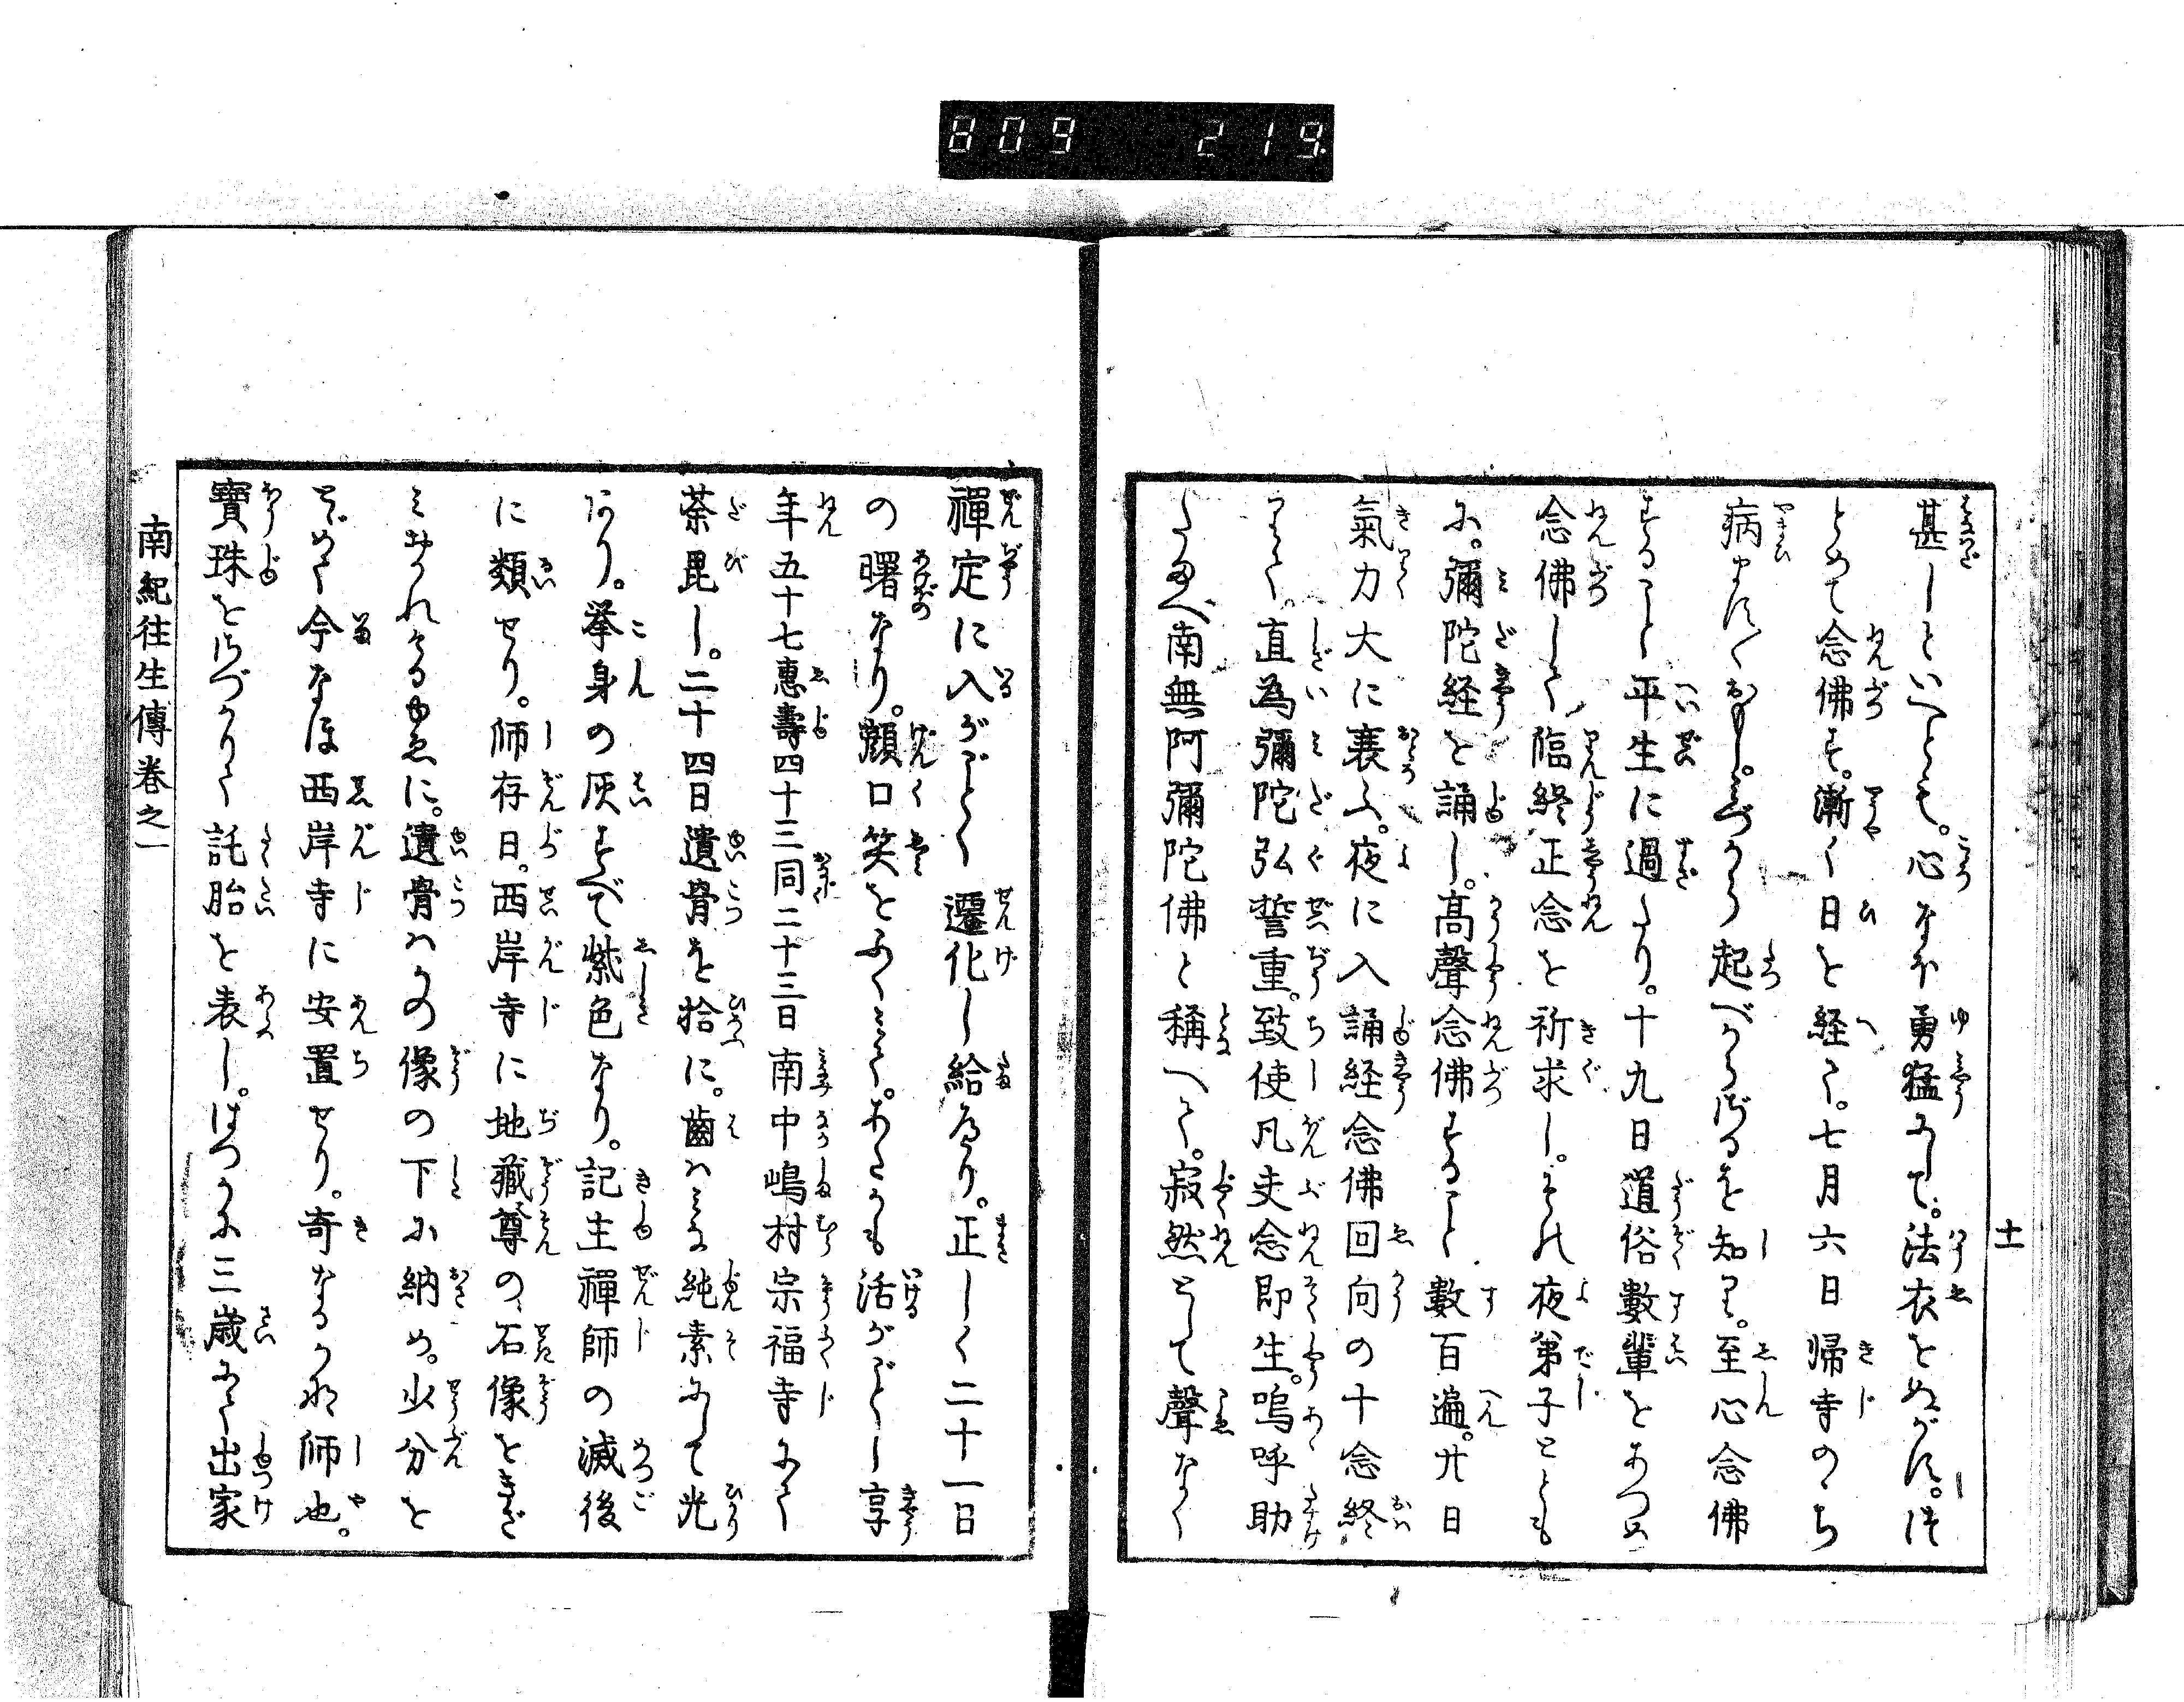 809 219
十一
甚しといへども。心なお勇猛にして。法衣をぬがず。つ
とめて念佛す。漸く日を経て。七月六日帰寺のゝち
病ます〳〵おもし。みづから起べからざるを知り。至心念佛
すること平生に過たり。十九日道俗數輩をあつめ
念佛して臨終正念を祈求し。それ夜弟子とともに
に。彌陀経を誦し。高聲念佛すること數百遍。廿日
氣力大に衰ふ。夜に入誦経念佛回向の十念終
りて。直為彌陀弘誓重。致使凡夫念即生。嗚呼助
たまへ南無阿彌陀佛と稱へて。寂然として聲なく
禪定に入がごとく遷化し給へり。正しく二十一日
の曙なり。顔口笑をふくみて。あたかも活がごとし享
年五十七惠壽四十三同二十三日南中嶋村宗福寺にて
荼毘し。二十四日遺骨を拾に。齒はみな純素にして光
あり。挙身の灰すべて紫色なり。記主禪師の滅後
に類せり。師存日。西岸寺に地藏尊の石像をきざ
みおかれたるゆゑに。遺骨はかの像の下に納め。少分を
ば。めて今なほ西岸寺に安置せり。奇なるかな師也。
寶珠をさづかりて託胎を表し。はつかに三歳にて出家
南紀往生傳巻之一